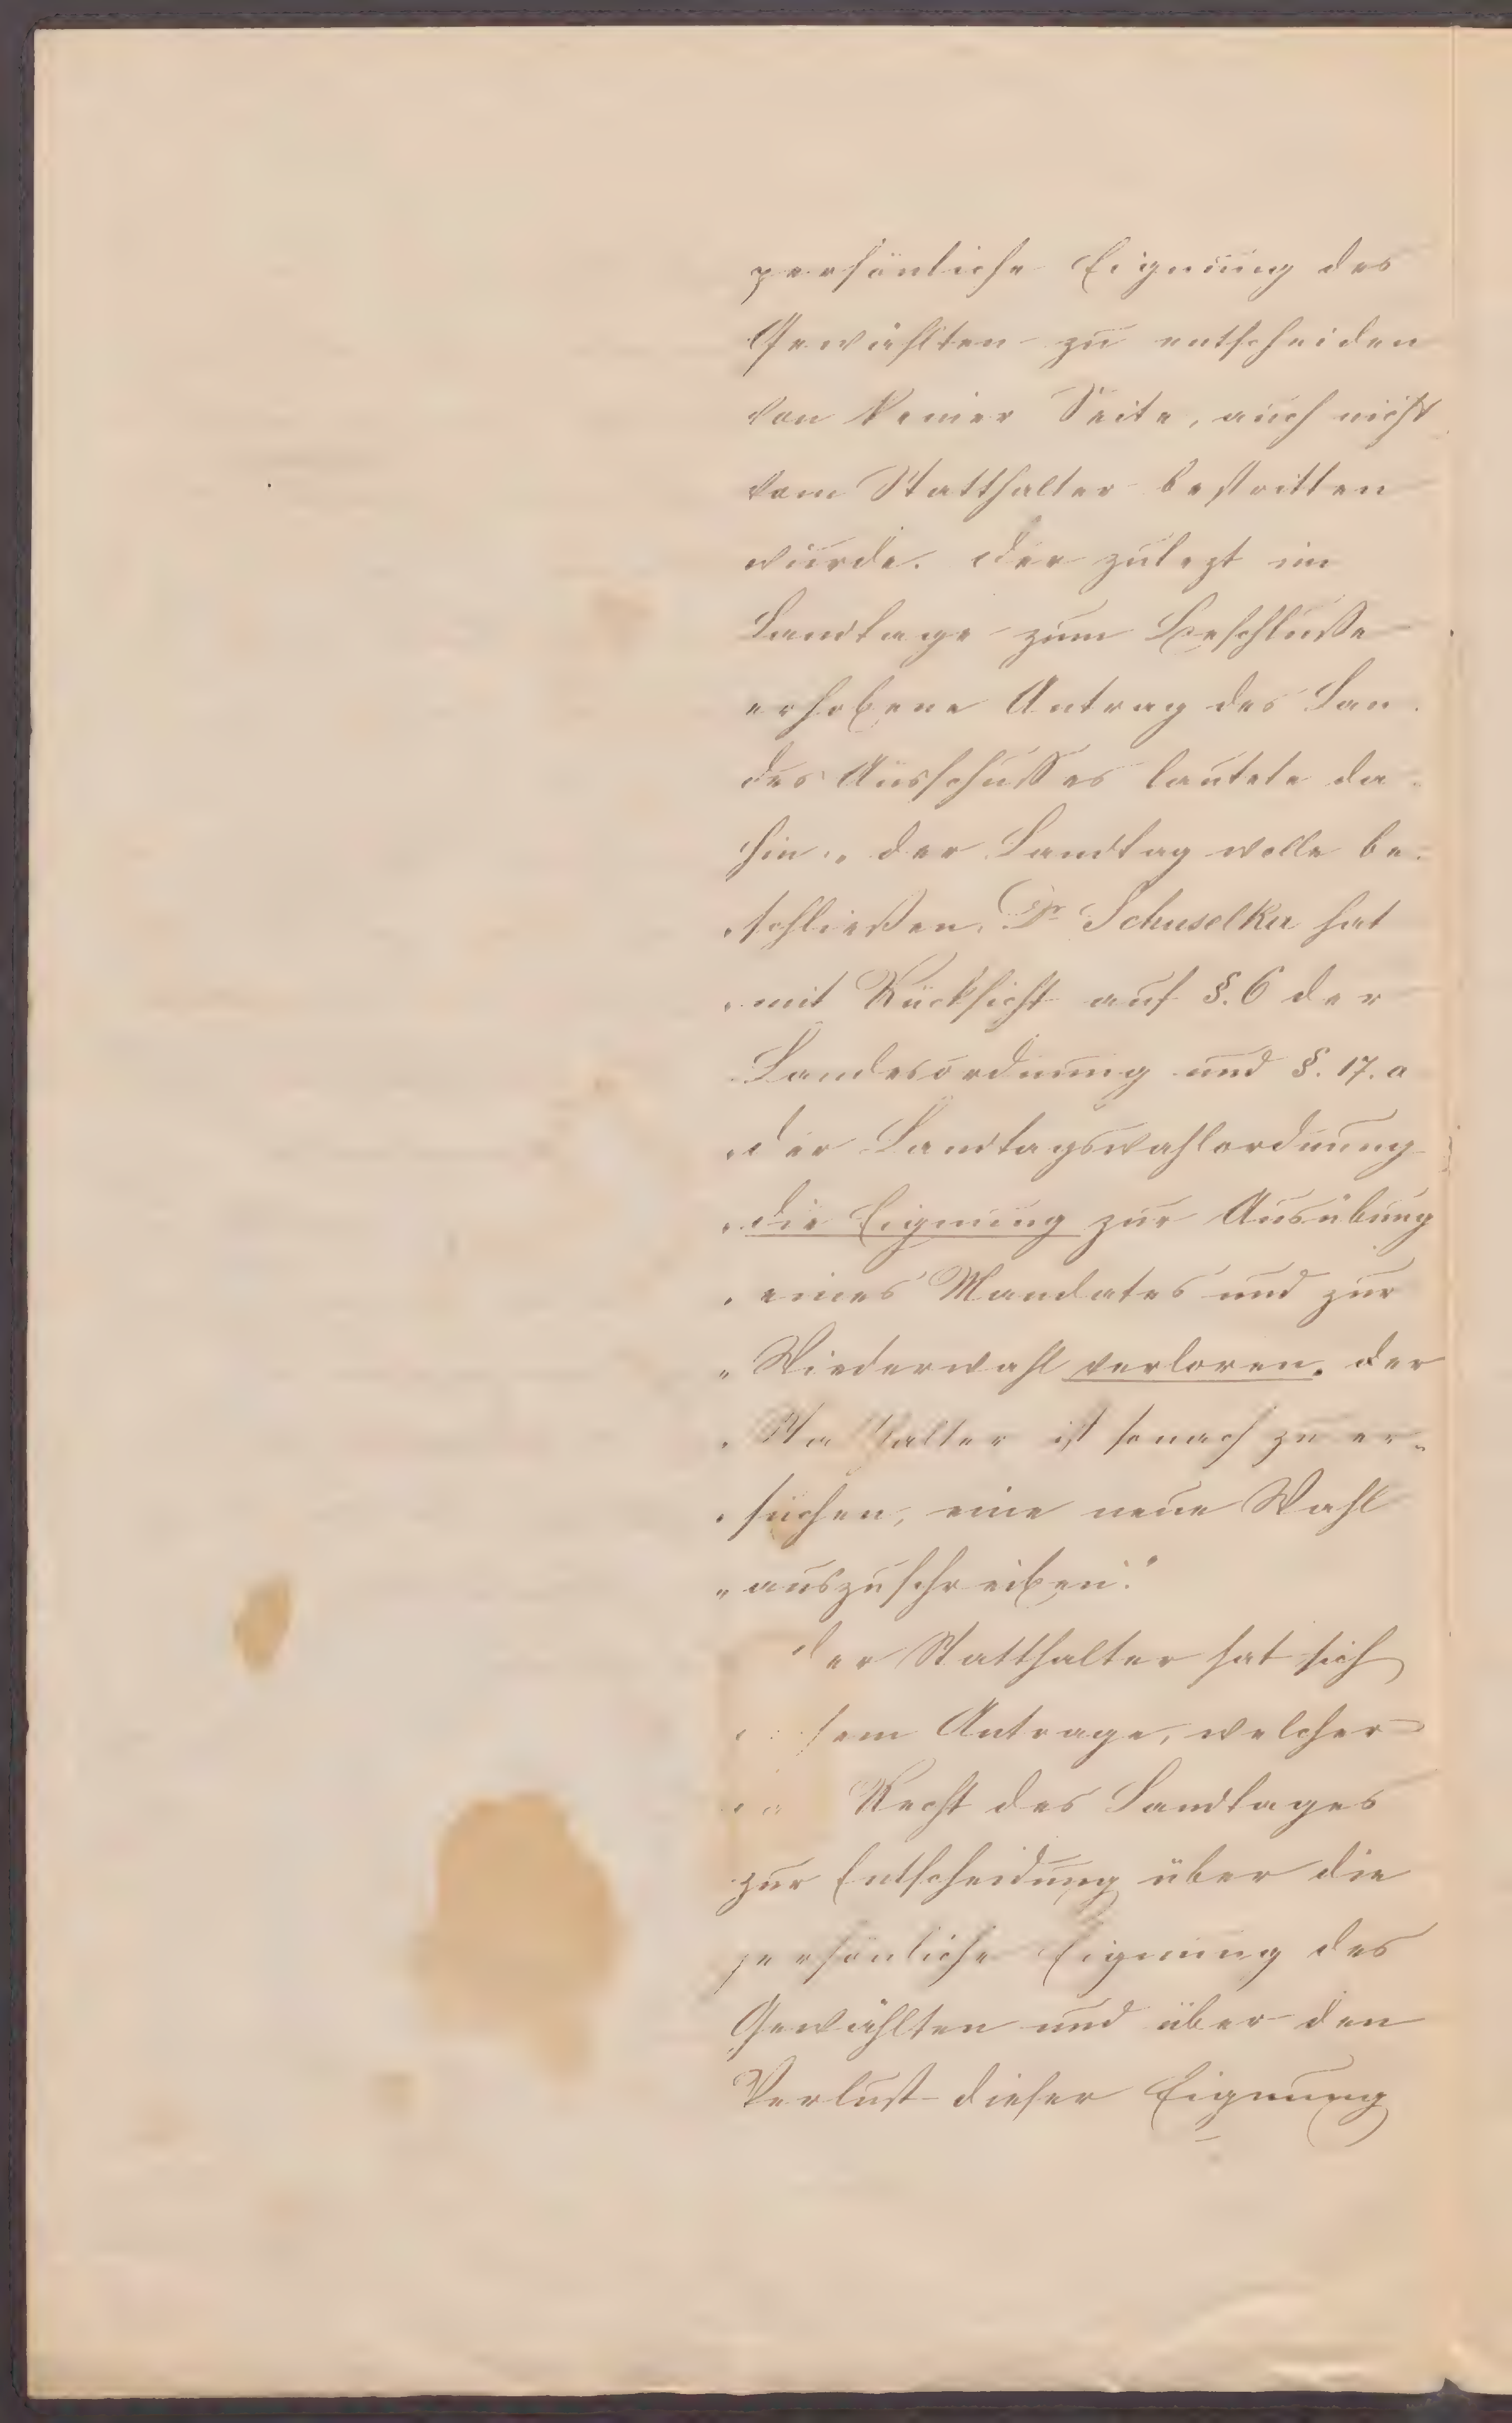 persönliche Eignung des
Gewählten zu entscheiden
von keiner Seite, auch nicht
vom Statthalter bestritten
wurde. Der zulezt im
Landtage zum Beschluße
erhobene Antrag des Lan
des Ausschusses lautete da-
hin „der Landtag wolle be-
„schließen, Dr Schuselka hat
„mit Rücksicht auf §. 6 der
„Landesordnung und §. 17. a
„der Landtagswahlordnung
„die Eignung zur Ausübung
„eines Mandates und zur
„Wiederwahl verloren. Der
„Statthalter ist sonach zu er-
„suchen, eine neue Wahl
„auszuschreiben."
Der Statthalter hat sich
Antrage, welcher
Recht des Landtages
zur Entscheidung über die
persönliche Eignung des
Gewählten und über den
Verlust dieser Eignung